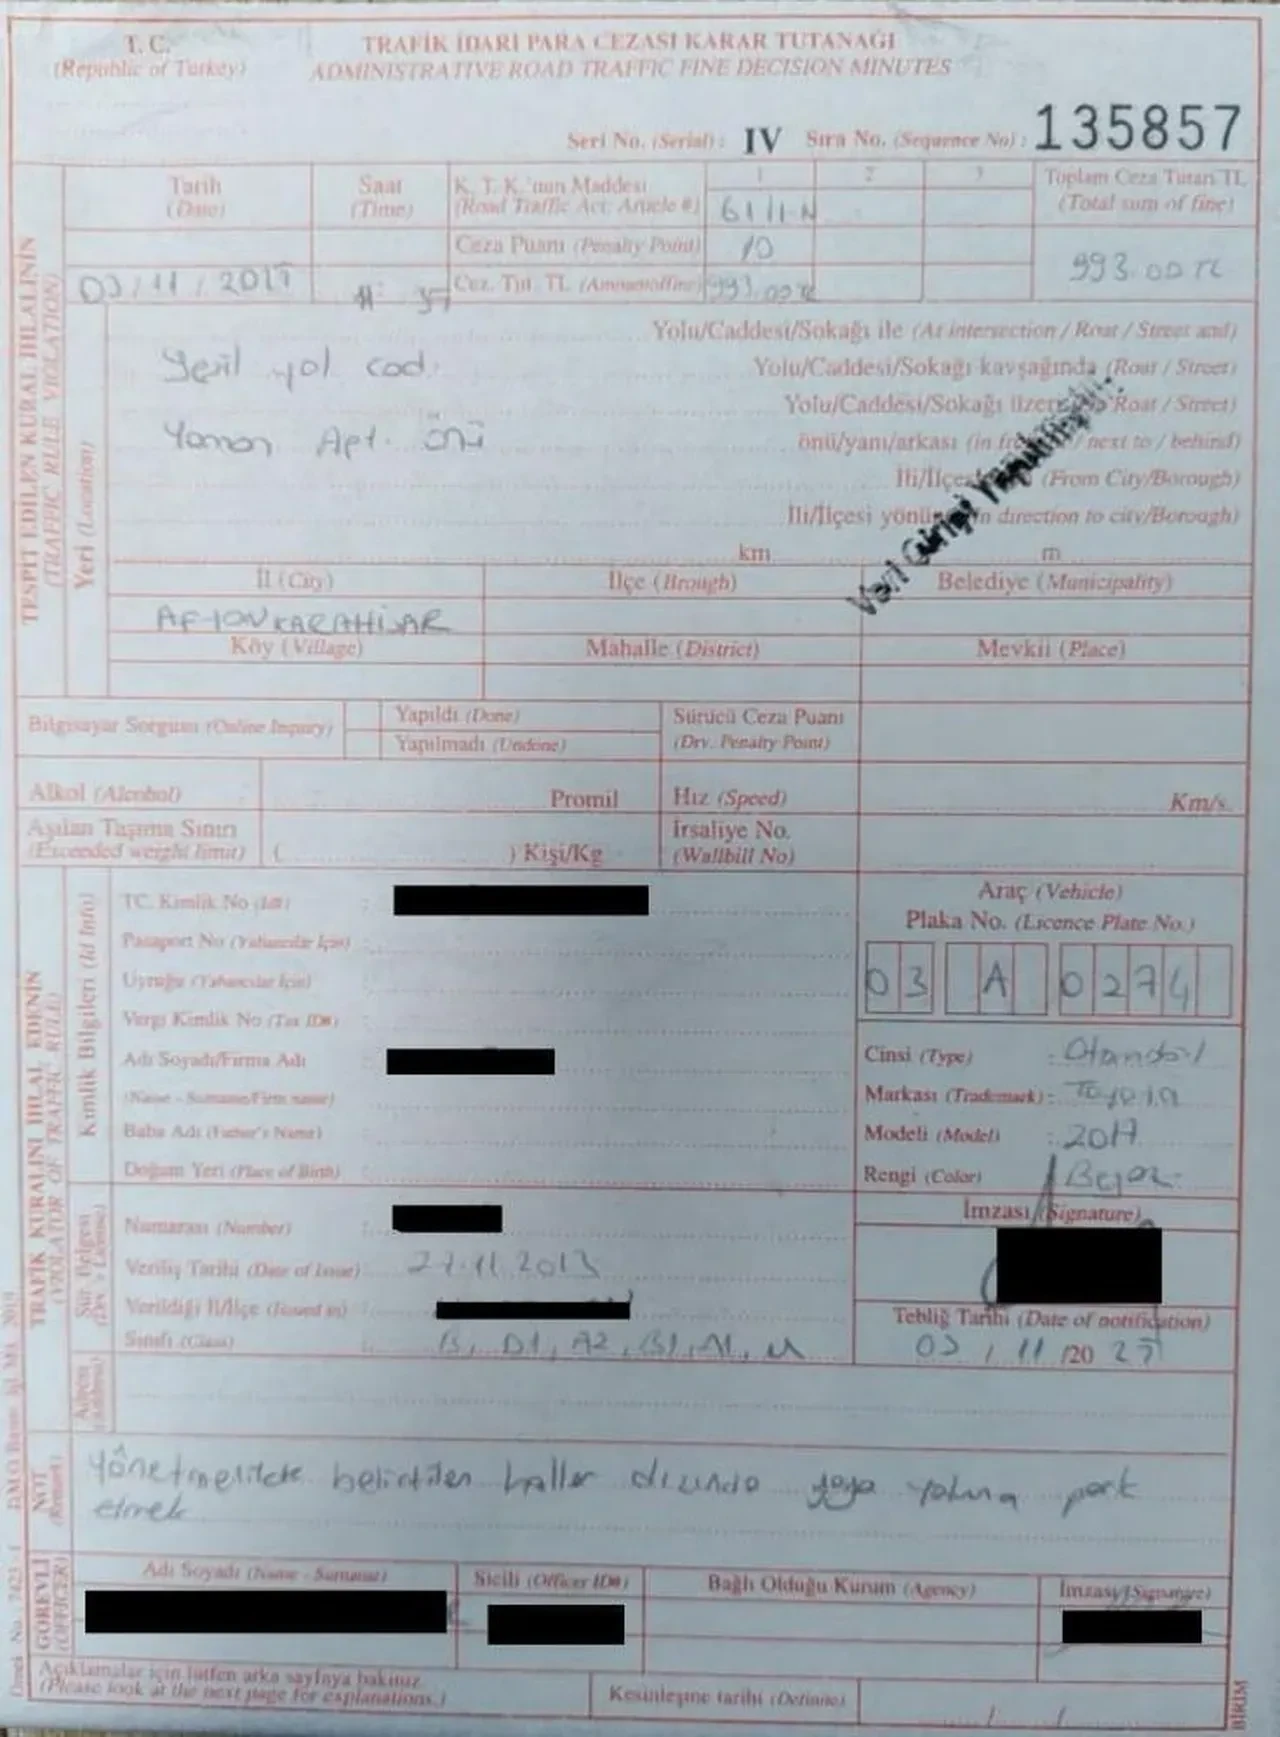 T. C.
(Republic of Turkey)
TRAFİK İDARİ PARA CEZASI KARAR TUTANAĞI
ADMINISTRATIVE ROAD TRAFFIC FINE DECISION MINUTES
Seri No. (Serial) : IV Sıra No. (Sequence No) : 135857
TESPİT EDİLEN KURAL İHLALİNİN
(TRAFFIC RULE VIOLATION)
Tarih
(Date)
03/11/2017
Saat
(Time)
K. T. K.'nun Maddesi
(Road Traffic Act: Article #)
1 2 3
61/1-N
Ceza Puanı (Penalty Point)
10
Cez. Tut. TL.
993.00 TL
Toplam Ceza Tutarı TL
(Total sum of fine)
993.00 TL
Yeri (Location)
Yolu/Caddesi/Sokağı ile (At intersection / Roat / Street and)
Yeşil yol cad.
Yolu/Caddesi/Sokağı kavşağında (Roat / Street)
Yolu/Caddesi/Sokağı Roat / Street)
Yaman Apt. önü
önü/yanı/arkası next to / behind)
(From City/Borough)
İli/İlçesi in direction to city/Borough)
Veri Girişi Yapılmıştır.
km m
İl (City) İlçe (Brough) Belediye (Municipality)
AFYONKARAHİSAR
Köy (Village) Mahalle (District) Mevkii (Place)
Bilgisayar Sorgusu (Online Inquiry)
Yapıldı (Done)
Yapılmadı (Undone)
Sürücü Ceza Puanı
(Drv. Penalty Point)
Alkol (Alcohol) Promil Hız (Speed) Km/s.
Aşılan Taşıma Sınırı
(Exceeded weight limit) ( ) Kişi/Kg
İrsaliye No.
(Wallbill No)
TRAFİK KURALINI İHLAL EDENİN
(VIOLATOR OF TRAFFIC RULE)
Kimlik Bilgileri (Id Info)
TC. Kimlik No (Id#) :
Pasaport No (Yabancılar İçin) :
Uyruğu (Yabancılar İçin) :
Vergi Kimlik No (Tax ID#) :
Adı Soyadı/Firma Adı :
(Name - Surname/Firm name)
Baba Adı (Father's Name) :
Doğum Yeri (Place of Birth) :
Araç (Vehicle)
Plaka No. (Licence Plate No.)
03 A 0274
Cinsi (Type) : Otomobil
Markası (Trademark) : Toyota
Modeli (Model) : 2017
Rengi (Color) : Beyaz
Sür. Belgesi
(Drv. License)
Numarası (Number) :
Veriliş Tarihi (Date of Issue) : 27.11.2013
Verildiği İl/İlçe (Issued in) :
Sınıfı (Class) : B, D1, A2, B1, A1, M
İmzası (Signature)
Tebliğ Tarihi (Date of notification)
03 / 11 /20
Adresi
(Address)
NOT
(Remark)
Yönetmelikte belirtilen haller dışında yaya yoluna park
etmek
GÖREVLİ
(OFFICER)
Adı Soyadı (Name - Surname) Sicili (Officer ID#) Bağlı Olduğu Kurum (Agency) İmzası (Signature)
Açıklamalar için lütfen arka sayfaya bakınız.
(Please look at the next page for explanations.)
Kesinleşme tarihi (Definite) / /
BİRİM